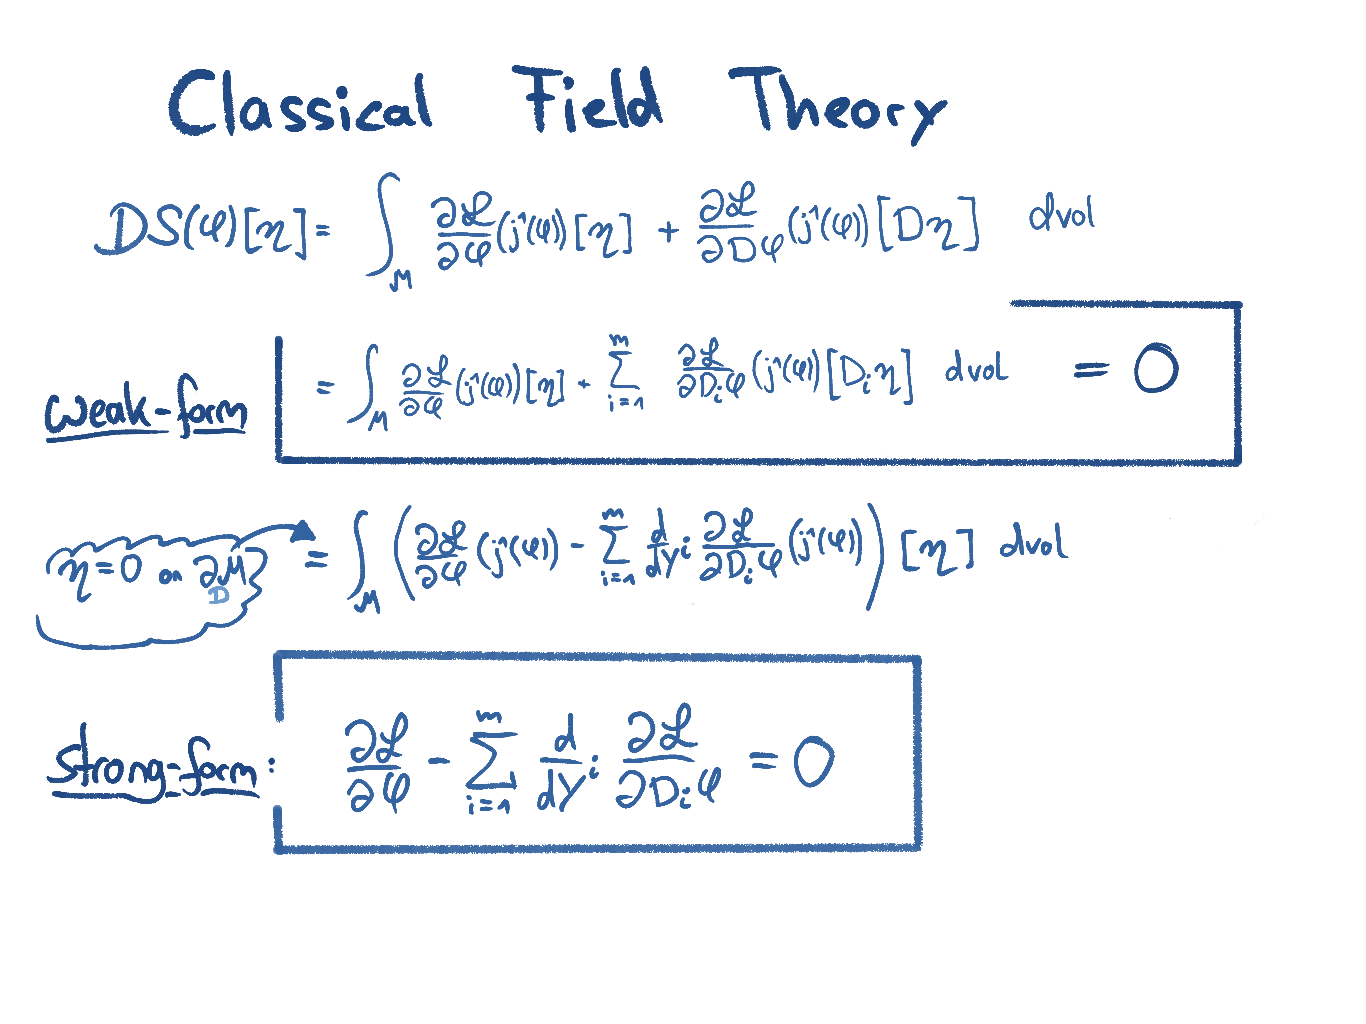 Classical Field Theory
DS(φ)[η] = ∫_M ∂ℒ/∂φ (j¹(φ))[η] + ∂ℒ/∂Dφ (j¹(φ))[Dη] dvol
weak-form = ∫_M ∂ℒ/∂φ (j¹(φ))[η] + ∑_{i=1}^m ∂ℒ/∂D_iφ (j¹(φ))[D_iη] dvol = 0
(η = 0 on ∂_D M) = ∫_M (∂ℒ/∂φ (j¹(φ)) - ∑_{i=1}^m d/dY^i ∂ℒ/∂D_iφ (j¹(φ))) [η] dvol
strong-form: ∂ℒ/∂φ - ∑_{i=1}^m d/dY^i ∂ℒ/∂D_iφ = 0